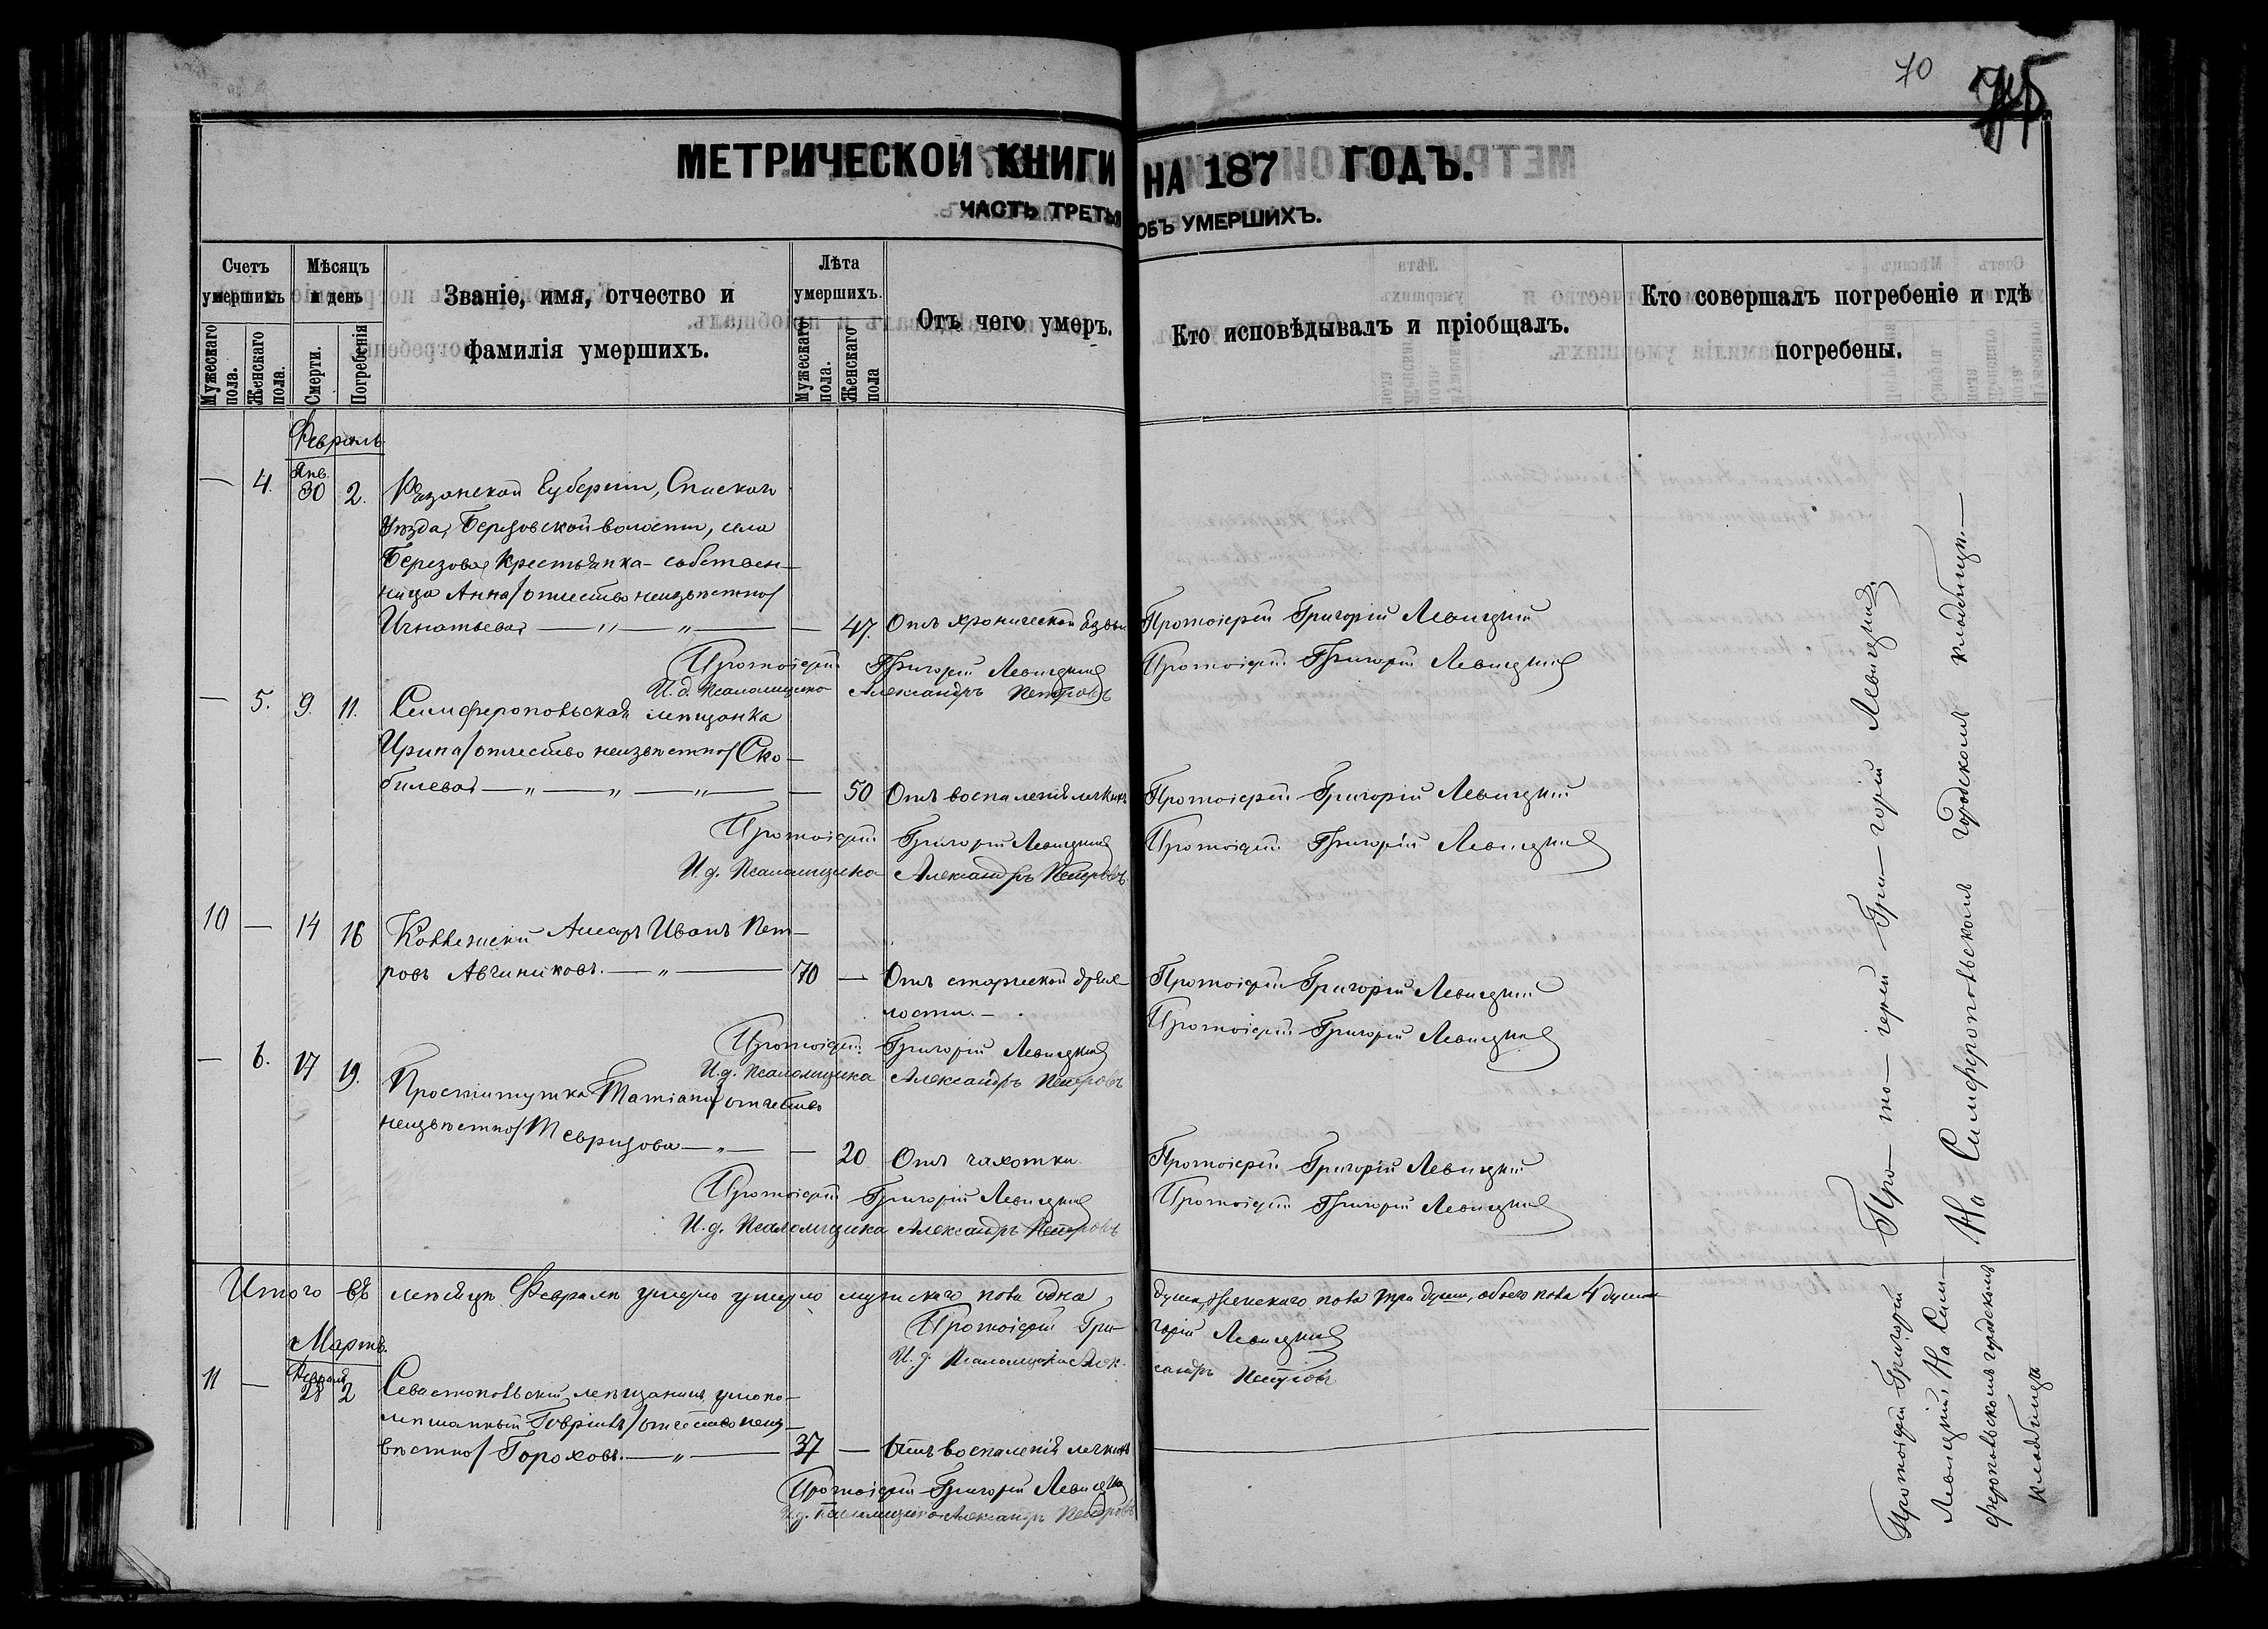 70
745
МЕТРИЧЕСКОЙ КНИГИ НА 187 ГОДЪ.
ЧАСТЬ ТРЕТЬЯ ОБЪ УМЕРШИХЪ.
Счетъ умершихъ
Мужескаго пола.
Женскаго пола.
Мѣсяцъ и день
Смерти.
Погребенія
Званіе, имя, отчество и
фамилія умершихъ.
Лѣта умершихъ.
Мужескаго пола.
Женскаго пола
Отъ чего умеръ.
Кто исповѣдывалъ и пріобщалъ.
Кто совершалъ погребеніе и гдѣ
погребены.
Февраль
— 4. Янв. 30 2. Рязанской Губерніи, Спаскаго
Уѣзда, Березовской волости, села
Березова, крестьянка-собствен-
ница Анна /отчество неизвѣстно/
Игнатьева — „ — „ — — 47. Отъ хронической язвы. Протоіерей Григорій Левицкій
Протоіерей Григорій Левицкій Протоіерей Григорій Левицкій
И. д. Псаломщика Александръ Петровъ
— 5. 9. 11. Симферопольская мѣщанка
Ирина /отчество неизвѣстно/ Ско-
билева — „ — „ — „ — — 50 Отъ воспаленія легкихъ Протоіерей Григорій Левицкій
Протоіерей Григорій Левицкій Протоіерей Григорій Левицкій
И. д. Псаломщика Александръ Петровъ
10 — 14 16 Коллежскій Ассесоръ Иванъ Пет-
ровъ Авчинниковъ. — „ — 70 — Отъ старческой дрях- Протоіерей Григорій Левицкій
лости. — Протоіерей Григорій Левицкій
Протоіерей Григорій Левицкій
И. д. Псаломщика Александръ Петровъ
— 6. 17 19. Проститутка Татіана /отчество
неизвѣстно/ Тевризова — „ — — 20 Отъ чахотки Протоіерей Григорій Левицкій
Протоіерей Григорій Левицкій Протоіерей Григорій Левицкій
И. д. Псаломщика Александръ Петровъ
Про-то-іерей Гри-горій Левицкій.
На Симферопольскомъ городскомъ кладбищѣ. —
Итого въ мѣсяцѣ Февралѣ умерло мужскаго пола одна душа, женскаго пола три души, обоего пола 4 души
Протоіерей Григорій Левицкій
И. д. Псаломщика Александръ Петровъ
Мартъ.
11 — Февраля 28 2 Севастопольскій мѣщанинъ умопо-
мѣшанный Гавріилъ /отчество неиз-
вѣстно/ Гороховъ. — „ — 37 — Отъ воспаленія легкихъ
Протоіерей Григорій Левицкій
И. д. Псаломщика Александръ Петровъ
Протоіерей Григорій
Левицкій, На Сим-
феропольскомъ городскомъ
кладбищѣ